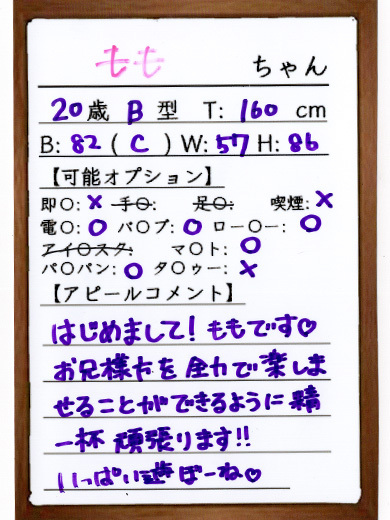 もも ちゃん
20歳 B型 T: 160 cm
B: 82 ( C ) W: 57 H: 86
【可能オプション】
即〇: × 手〇: 足〇: 喫煙: ×
電〇: 〇 バ〇ブ: 〇 ロー〇ー: 〇
アイ〇スタ: マ〇ト: 〇
パ〇パン: 〇 タ〇ゥー: ×
【アピールコメント】
はじめまして! ももです♡
お兄様方を全力で楽しま
せることができるように精
一杯頑張ります!!
いっぱい遊ぼーね♡